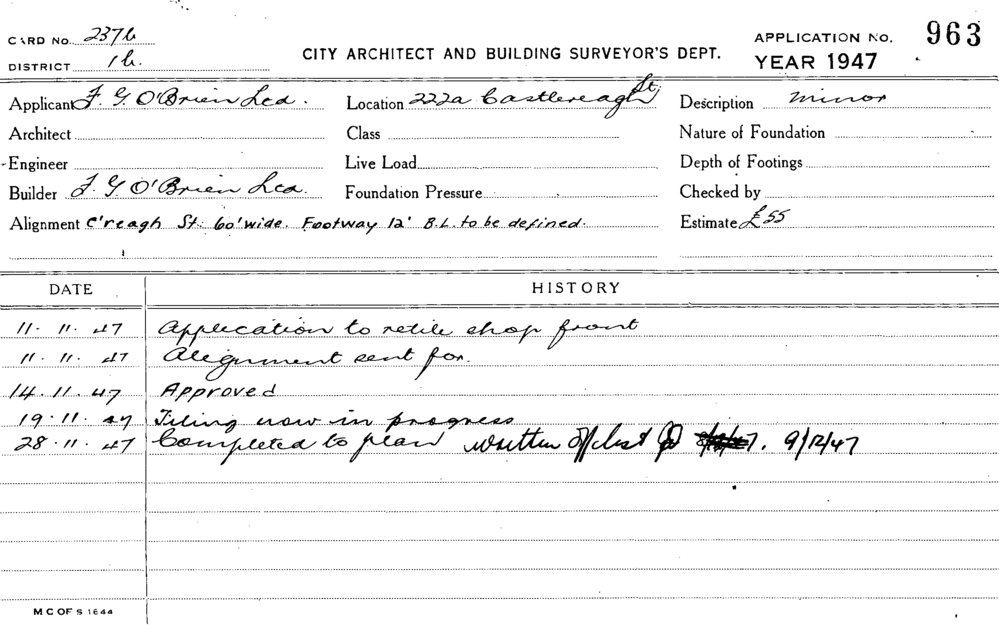 CARD No. 2376
DISTRICT 1b.
CITY ARCHITECT AND BUILDING SURVEYOR'S DEPT.
APPLICATION No. 963
YEAR 1947
Applicant F. G. O'Brien Ltd.
Location 222a Castlereagh St.
Description minor
Architect
Class
Nature of Foundation
Engineer
Live Load
Depth of Footings
Builder F. G. O'Brien Ltd.
Foundation Pressure
Checked by
Alignment C'reagh St. 60' wide. Footway 12' B.L. to be defined.
Estimate £55
DATE HISTORY
11. 11. 47 Application to retile shop front
11. 11. 47 Alignment sent for.
14. 11. 47 Approved
19. 11. 47 Tiling now in progress
28. 11. 47 Completed to plan written off list 9/12/47
M C OF S 1644